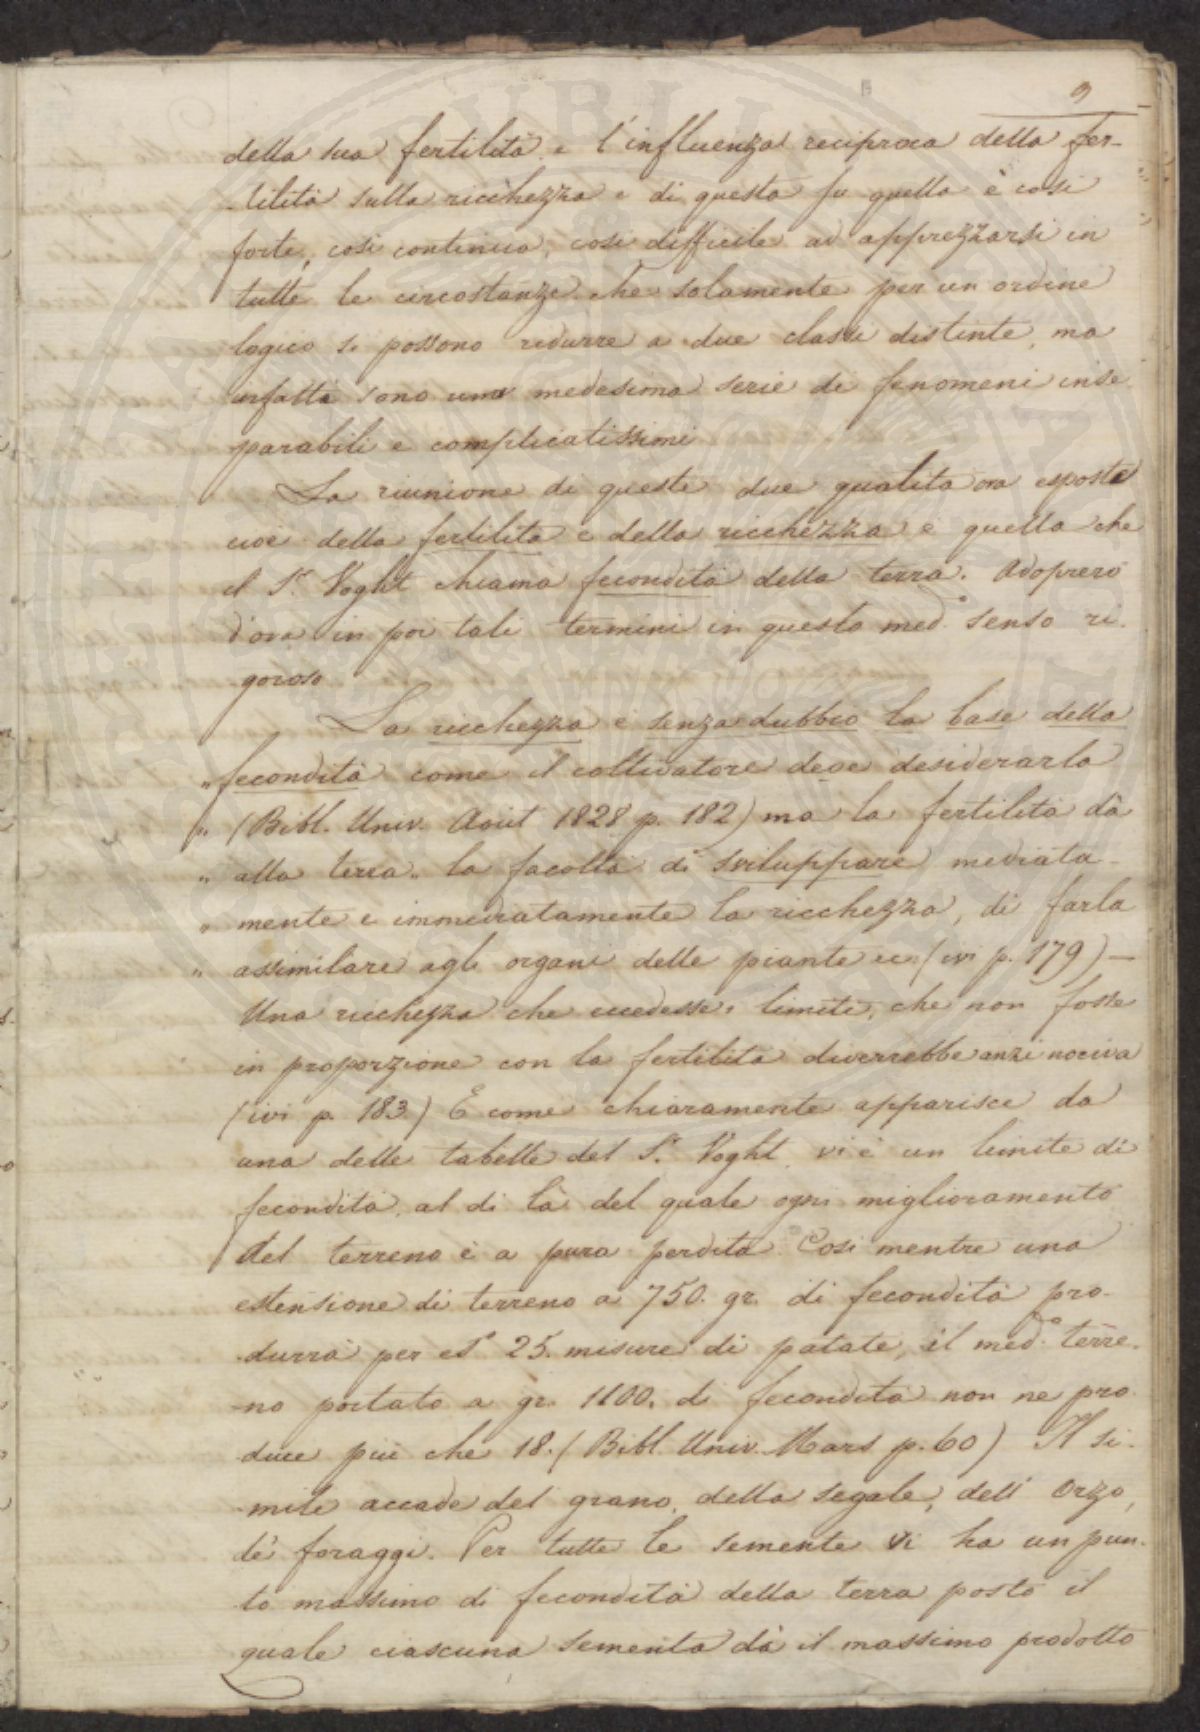 9
della sua fertilità e l'influenza reciproca della fer-
tilità sulla ricchezza e di questa su quella è così
forte, così continua, così difficile ad apprezzarsi in
tutte le circostanze che solamente per un ordine
logico si possono ridurre a due classi distinte, ma
infatti sono una medesima serie di fenomeni inse
parabili e complicatissimi
La riunione di queste due qualità ora esposte
cioè della fertilità e della ricchezza è quella che
il Sr. Voght chiama fecondità della terra. Adoprerò
d'ora in poi tali termini in questo medo. senso ri
goroso
La ricchezza è senza dubbio la base della
" fecondità come il coltivatore deve desiderarla
" (Bibl. Univ. Aout 1828 p. 182) ma la fertilità dà
" alla terra " la facoltà di sviluppare mediata
" mente e immediatamente la ricchezza, di farla
" assimilare agli organi delle piante ec. (ivi p. 179) —
Una ricchezza che eccedesse i limiti, che non fosse
in proporzione con la fertilità diverrebbe anzi nociva
(ivi p. 183) E come chiaramente apparisce da
una delle tabelle del Sr. Voght vi è un limite di
fecondità, al di là del quale ogni miglioramento
del terreno è a pura perdita. Così mentre una
estensione di terreno a 750. gr. di fecondità pro-
durrà per eso 25. misure di patate, il medo. terre-
no portato a gr. 1100. di fecondità non ne pro
duce più che 18. (Bibl. Univ. Mars p. 60) Il si-
mile accade del grano, della segale, dell' Orzo,
de' foraggi. Per tutte le semente vi ha un pun-
to massimo di fecondità della terra posto il
quale ciascuna sementa dà il massimo prodotto